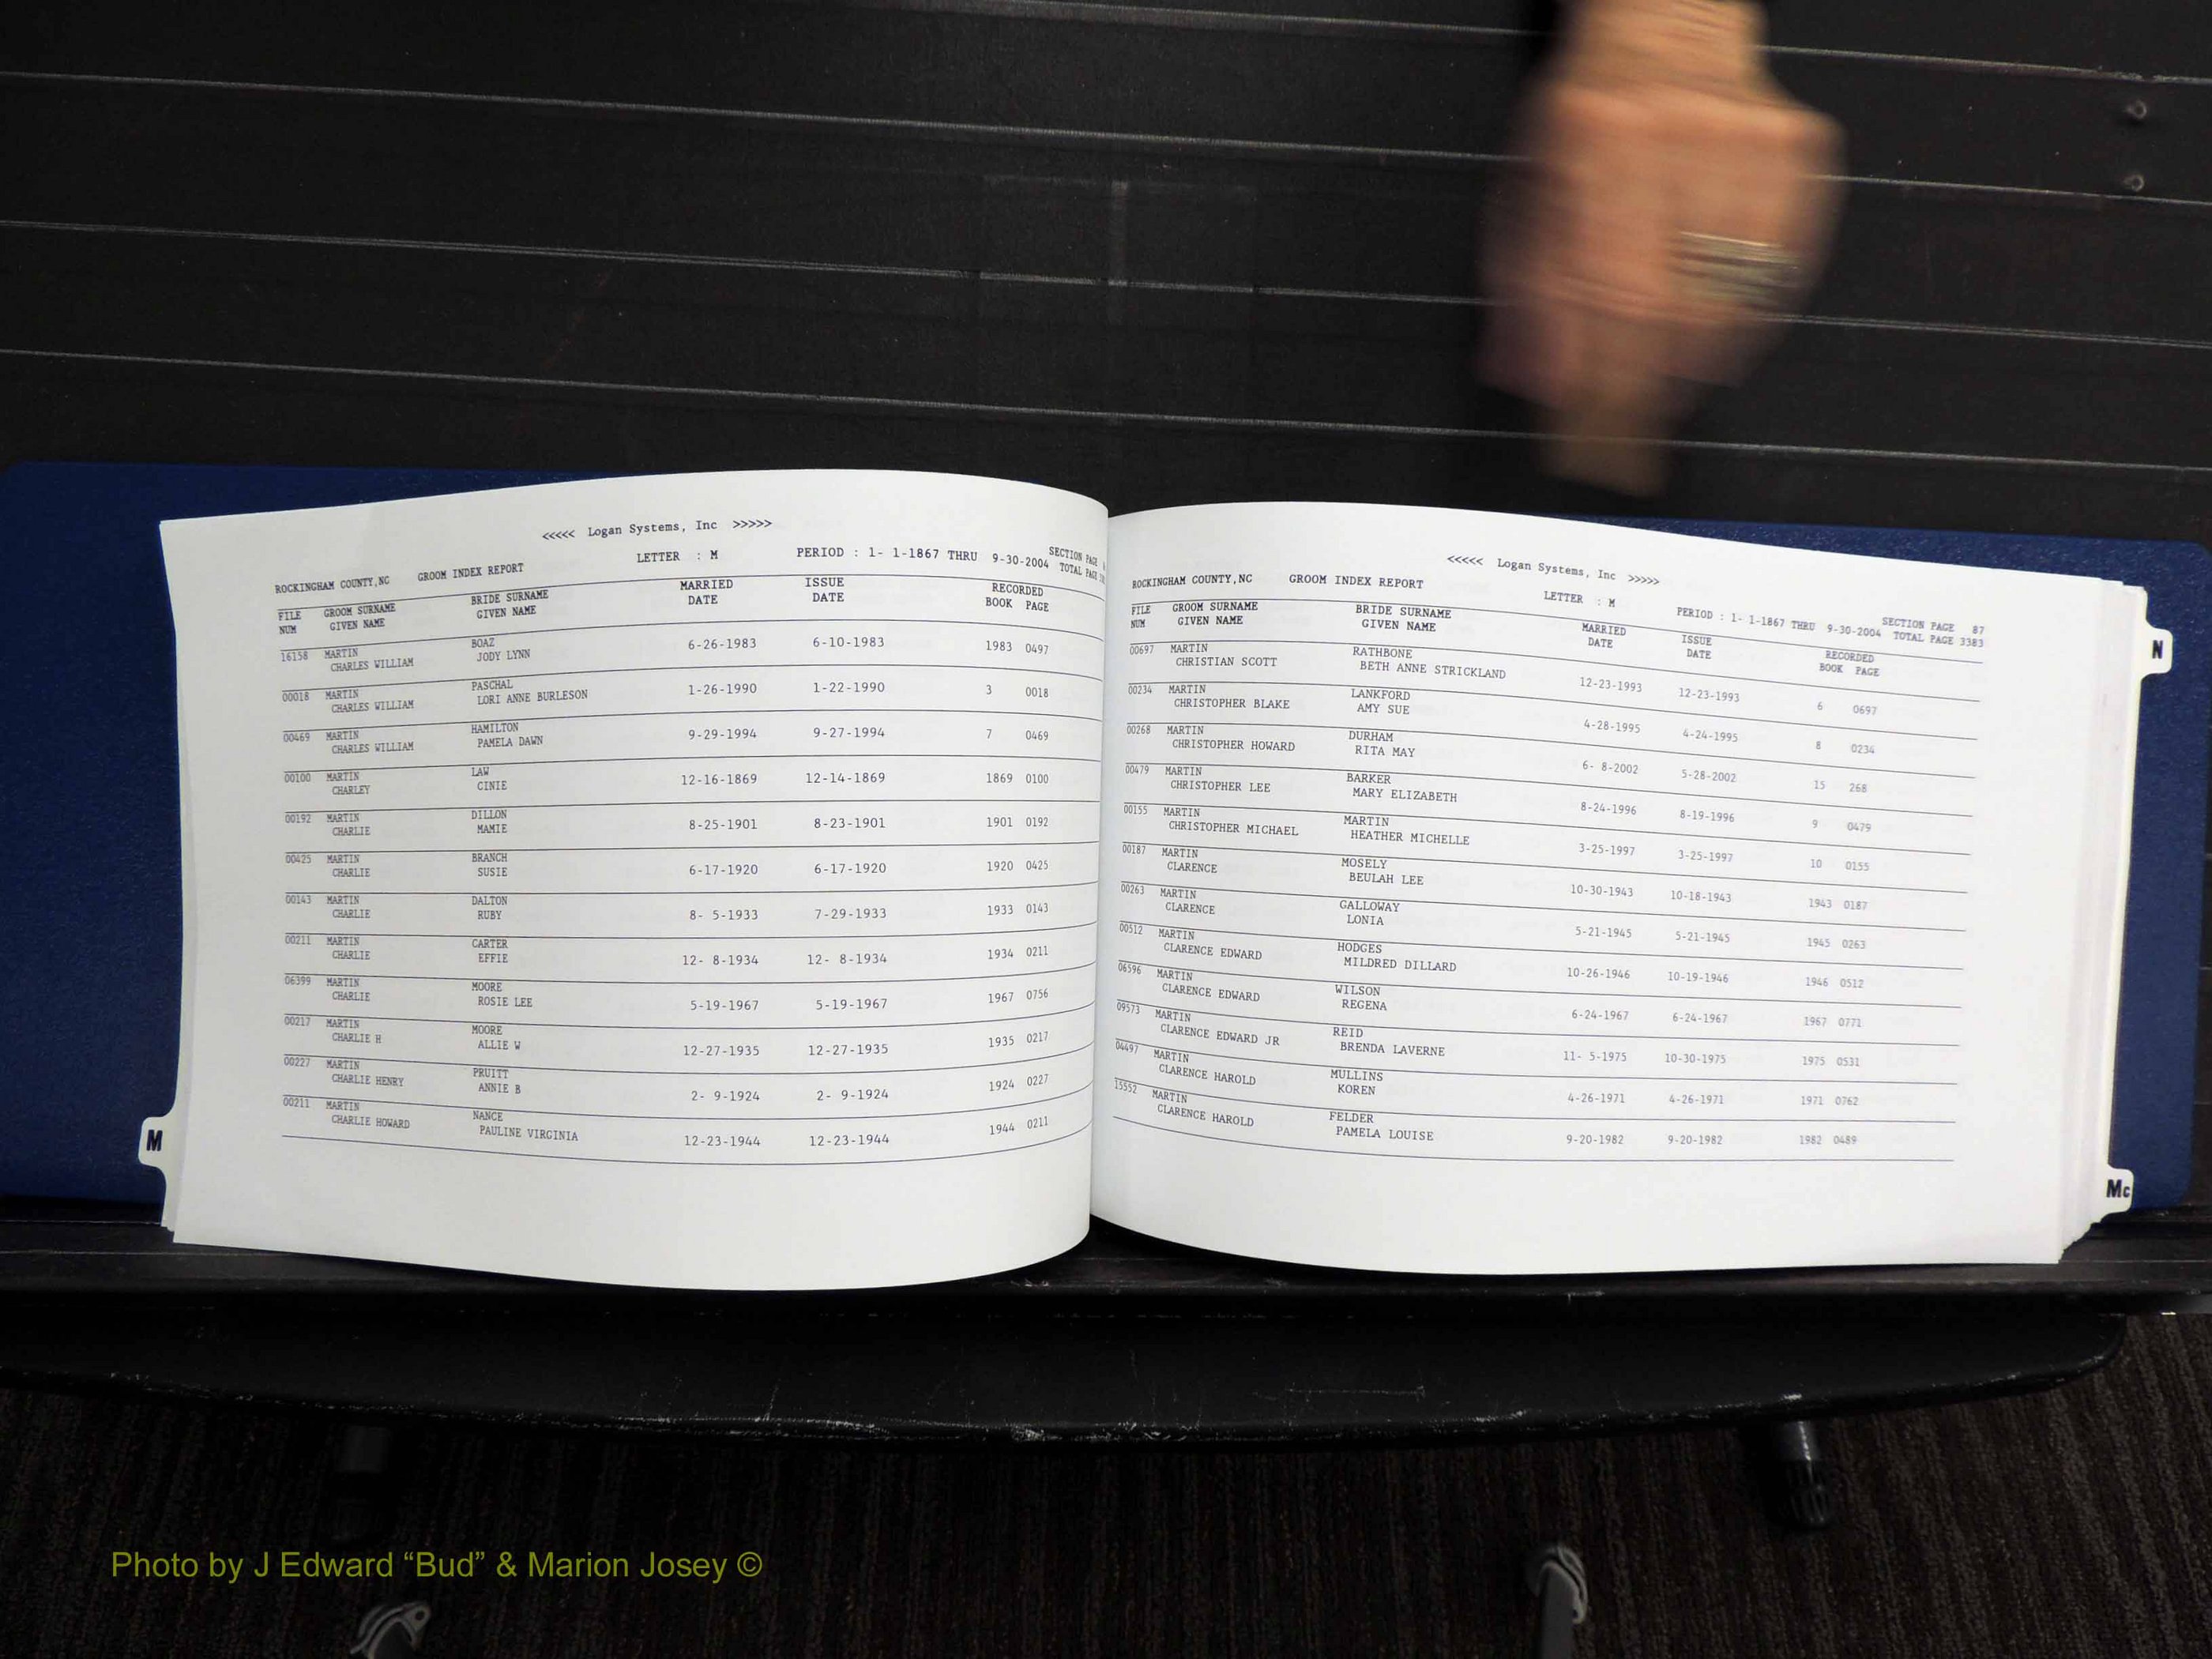 <<<<< Logan Systems, Inc >>>>>
ROCKINGHAM COUNTY,NC GROOM INDEX REPORT LETTER : M PERIOD : 1- 1-1867 THRU 9-30-2004 SECTION PAGE
TOTAL PAGE
FILE GROOM SURNAME BRIDE SURNAME MARRIED ISSUE RECORDED
NUM GIVEN NAME GIVEN NAME DATE DATE BOOK PAGE
16158 MARTIN BOAZ 6-26-1983 6-10-1983 1983 0497
CHARLES WILLIAM JODY LYNN
00018 MARTIN PASCHAL 1-26-1990 1-22-1990 3 0018
CHARLES WILLIAM LORI ANNE BURLESON
00469 MARTIN HAMILTON 9-29-1994 9-27-1994 7 0469
CHARLES WILLIAM PAMELA DAWN
00100 MARTIN LAW 12-16-1869 12-14-1869 1869 0100
CHARLEY CINIE
00192 MARTIN DILLON 8-25-1901 8-23-1901 1901 0192
CHARLIE MAMIE
00425 MARTIN BRANCH 6-17-1920 6-17-1920 1920 0425
CHARLIE SUSIE
00143 MARTIN DALTON 8- 5-1933 7-29-1933 1933 0143
CHARLIE RUBY
00211 MARTIN CARTER 12- 8-1934 12- 8-1934 1934 0211
CHARLIE EFFIE
06399 MARTIN MOORE 5-19-1967 5-19-1967 1967 0756
CHARLIE ROSIE LEE
00217 MARTIN MOORE 12-27-1935 12-27-1935 1935 0217
CHARLIE H ALLIE W
00227 MARTIN PRUITT 2- 9-1924 2- 9-1924 1924 0227
CHARLIE HENRY ANNIE B
00211 MARTIN NANCE 12-23-1944 12-23-1944 1944 0211
CHARLIE HOWARD PAULINE VIRGINIA
M
<<<<< Logan Systems, Inc >>>>>
ROCKINGHAM COUNTY,NC GROOM INDEX REPORT LETTER : M PERIOD : 1- 1-1867 THRU 9-30-2004 SECTION PAGE 87
TOTAL PAGE 3383
FILE GROOM SURNAME BRIDE SURNAME MARRIED ISSUE RECORDED
NUM GIVEN NAME GIVEN NAME DATE DATE BOOK PAGE
00697 MARTIN RATHBONE 12-23-1993 12-23-1993 6 0697
CHRISTIAN SCOTT BETH ANNE STRICKLAND
00234 MARTIN LANKFORD 4-28-1995 4-24-1995 8 0234
CHRISTOPHER BLAKE AMY SUE
00268 MARTIN DURHAM 6- 8-2002 5-28-2002 15 268
CHRISTOPHER HOWARD RITA MAY
00479 MARTIN BARKER 8-24-1996 8-19-1996 9 0479
CHRISTOPHER LEE MARY ELIZABETH
00155 MARTIN MARTIN 3-25-1997 3-25-1997 10 0155
CHRISTOPHER MICHAEL HEATHER MICHELLE
00187 MARTIN MOSELY 10-30-1943 10-18-1943 1943 0187
CLARENCE BEULAH LEE
00263 MARTIN GALLOWAY 5-21-1945 5-21-1945 1945 0263
CLARENCE LONIA
00512 MARTIN HODGES 10-26-1946 10-19-1946 1946 0512
CLARENCE EDWARD MILDRED DILLARD
06596 MARTIN WILSON 6-24-1967 6-24-1967 1967 0771
CLARENCE EDWARD REGENA
09573 MARTIN REID 11- 5-1975 10-30-1975 1975 0531
CLARENCE EDWARD JR BRENDA LAVERNE
04497 MARTIN MULLINS 4-26-1971 4-26-1971 1971 0762
CLARENCE HAROLD KOREN
15552 MARTIN FELDER 9-20-1982 9-20-1982 1982 0489
CLARENCE HAROLD PAMELA LOUISE
N
Mc
Photo by J Edward “Bud” & Marion Josey ©